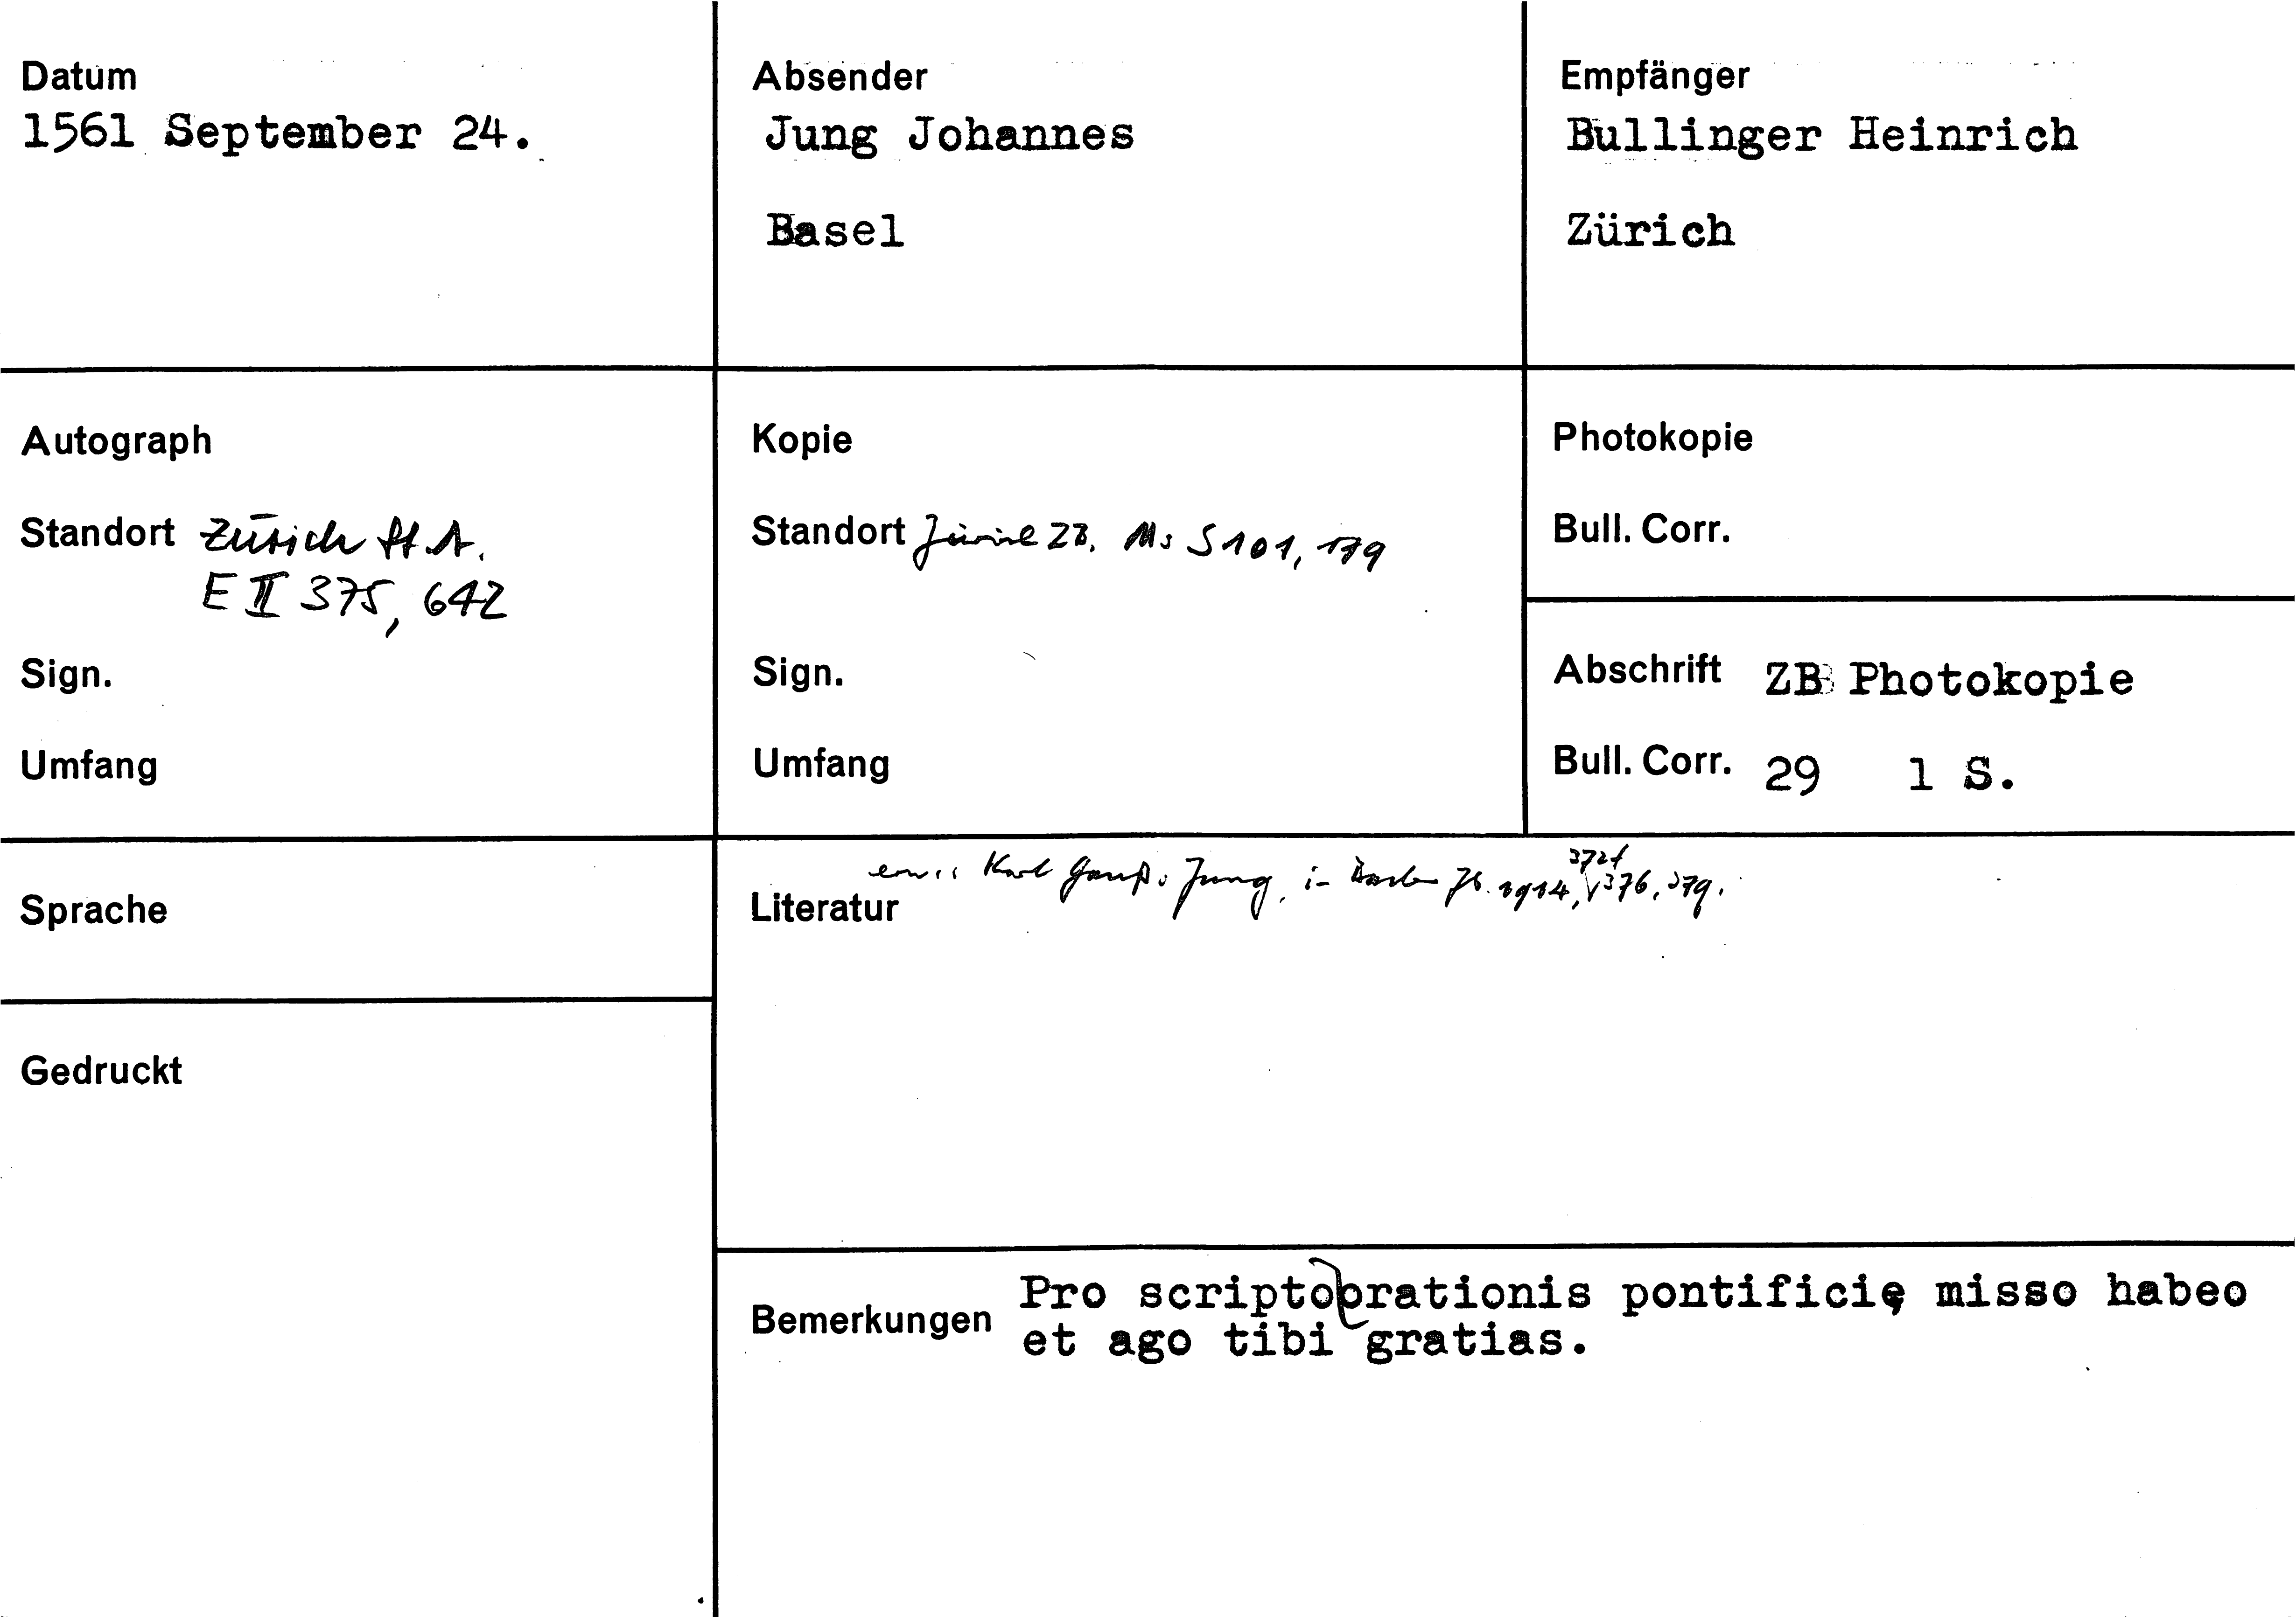 Datum
1561 September 24.
Absender
Jung Johannes
Basel
Empfänger
Bullinger Heinrich
Zürich
Autograph
Standort Zürich StA.
E II 375, 642
Sign.
Umfang
Kopie
Standort Zürich ZB, Ms S 101, 179
Sign.
Umfang
Photokopie
Bull. Corr.
Abschrift ZB Photokopie
Bull. Corr. 29 1 S.
Sprache
Gedruckt
372f
Literatur Karl Gauß: Jung, in Basler Jb. 1914, 376, 379.
Bemerkungen Pro scripto orationis pontificię misso habeo
et ago tibi gratias.